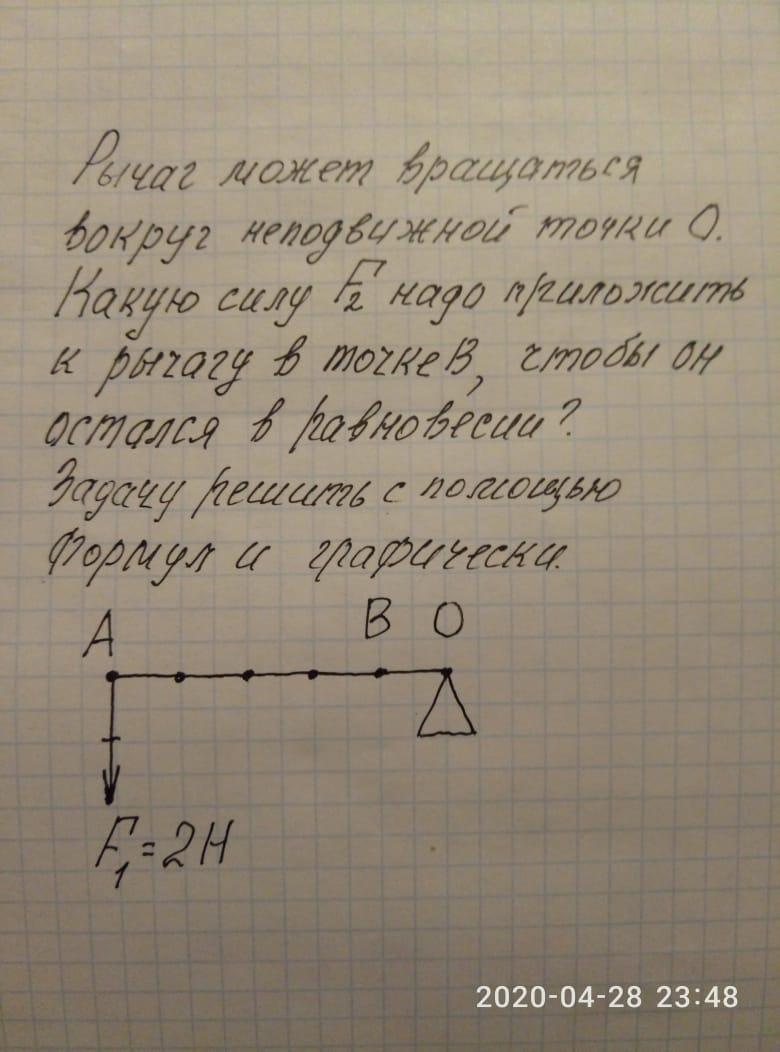 Рычаг может вращаться
вокруг неподвижной точки О.
Какую силу F₂ надо приложить
к рычагу в точке В, чтобы он
остался в равновесии?
Задачу решить с помощью
формул и графически.
А В О
F₁ = 2Н
2020-04-28 23:48